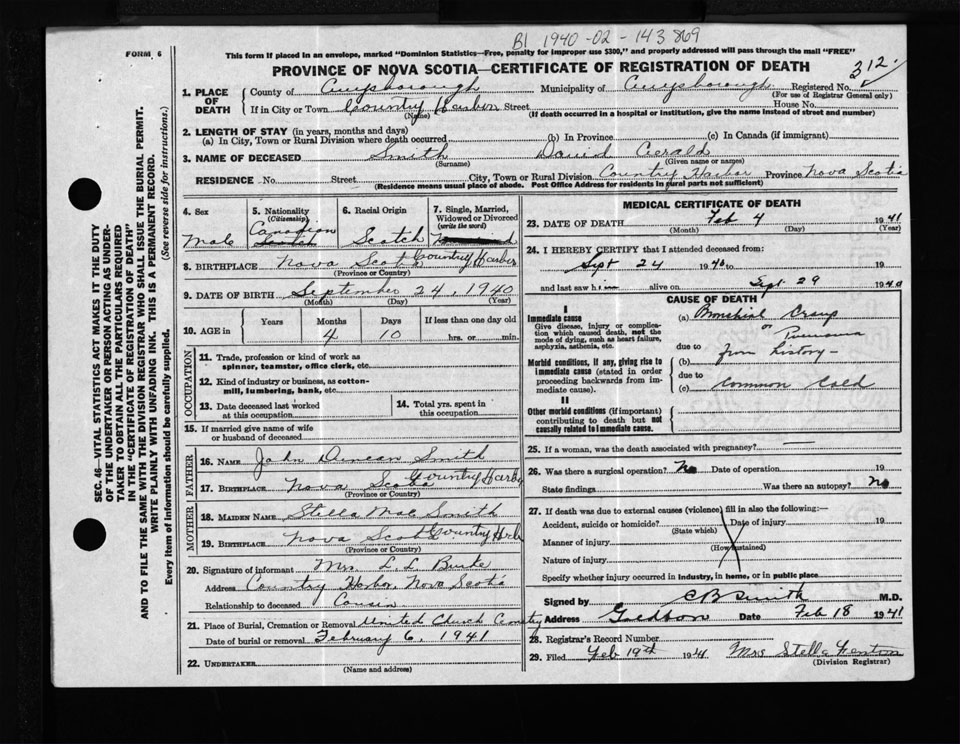 B1 1940-02-143869
FORM 6
This form if placed in an envelope, marked "Dominion Statistics—Free, penalty for improper use $300," and properly addressed will pass through the mail "FREE"
PROVINCE OF NOVA SCOTIA—CERTIFICATE OF REGISTRATION OF DEATH
312
SEC. 46—VITAL STATISTICS ACT MAKES IT THE DUTY
OF THE UNDERTAKER OR PERSON ACTING AS UNDER-
TAKER TO OBTAIN ALL THE PARTICULARS REQUIRED
IN THE "CERTIFICATE OF REGISTRATION OF DEATH"
AND TO FILE THE SAME WITH THE DIVISION REGISTRAR WHO SHALL ISSUE THE BURIAL PERMIT.
WRITE PLAINLY WITH UNFADING INK. THIS IS A PERMANENT RECORD.
Every item of information should be carefully supplied. (See reverse side for instructions.)
1. PLACE OF DEATH
County of Guysborough Municipality of Guysborough Registered No.
(For use of Registrar General only)
If in City or Town Country Harbor Street House No.
(Name) (If death occurred in a hospital or institution, give the name instead of street and number)
2. LENGTH OF STAY (in years, months and days)
(a) In City, Town or Rural Division where death occurred (b) In Province (c) In Canada (if immigrant)
3. NAME OF DECEASED Smith David Gerald
(Surname) (Given name or names)
RESIDENCE No. Street City, Town or Rural Division Country Harbor Province Nova Scotia
(Residence means usual place of abode. Post Office Address for residents in rural parts not sufficient)
4. Sex
Male
5. Nationality
(Citizenship)
Canadian
Scotch
6. Racial Origin
Scotch
7. Single, Married,
Widowed or Divorced
(write the word)
8. BIRTHPLACE Nova Scotia Country Harbor
(Province or Country)
9. DATE OF BIRTH September 24, 1940
(Month) (Day) (Year)
10. AGE in
Years Months Days If less than one day old
4 10 hrs. or min.
OCCUPATION
11. Trade, profession or kind of work as
spinner, teamster, office clerk, etc.
12. Kind of industry or business, as cotton-
mill, lumbering, bank, etc.
13. Date deceased last worked
at this occupation
14. Total yrs. spent in
this occupation
15. If married give name of wife
or husband of deceased
FATHER
16. NAME John Duncan Smith
17. BIRTHPLACE Nova Scotia Country Harbor
(Province or Country)
MOTHER
18. MAIDEN NAME Stella Mae Smith
19. BIRTHPLACE Nova Scotia Country Hrb
(Province or Country)
20. Signature of informant Mrs. L L Burke
Address Country Harbor, Nova Scotia
Relationship to deceased Cousin
21. Place of Burial, Cremation or Removal United Church Cemetry
Date of burial or removal February 6, 1941
22. UNDERTAKER
(Name and address)
MEDICAL CERTIFICATE OF DEATH
23. DATE OF DEATH Feb 4 1941
(Month) (Day) (Year)
24. I HEREBY CERTIFY that I attended deceased from:
Sept 24 1940 to 19
and last saw him alive on Sept 29 1940
CAUSE OF DEATH
I
Immediate cause
Give disease, injury or complica-
tion which caused death, not the
mode of dying, such as heart failure,
asphyxia, asthenia, etc.
(a) Bronchial Croup
or
due to
Morbid conditions, if any, giving rise to
immediate cause (stated in order
proceeding backwards from im-
mediate cause).
(b) from history -
due to
(c) Common Cold
II
Other morbid conditions (if important)
contributing to death but not
causally related to immediate cause.
25. If a woman, was the death associated with pregnancy? —
26. Was there a surgical operation? No Date of operation 19
State findings Was there an autopsy? No
27. If death was due to external causes (violence) fill in also the following:—
Accident, suicide or homicide? Date of injury 19
(State which)
Manner of injury
(How sustained)
Nature of injury
Specify whether injury occurred in industry, in home, or in public place
Signed by C B Smith M.D.
Address Goldboro Date Feb 18 1941
28. Registrar's Record Number
29. Filed Feb 19th 1941 Mrs Stella Fenton
(Division Registrar)